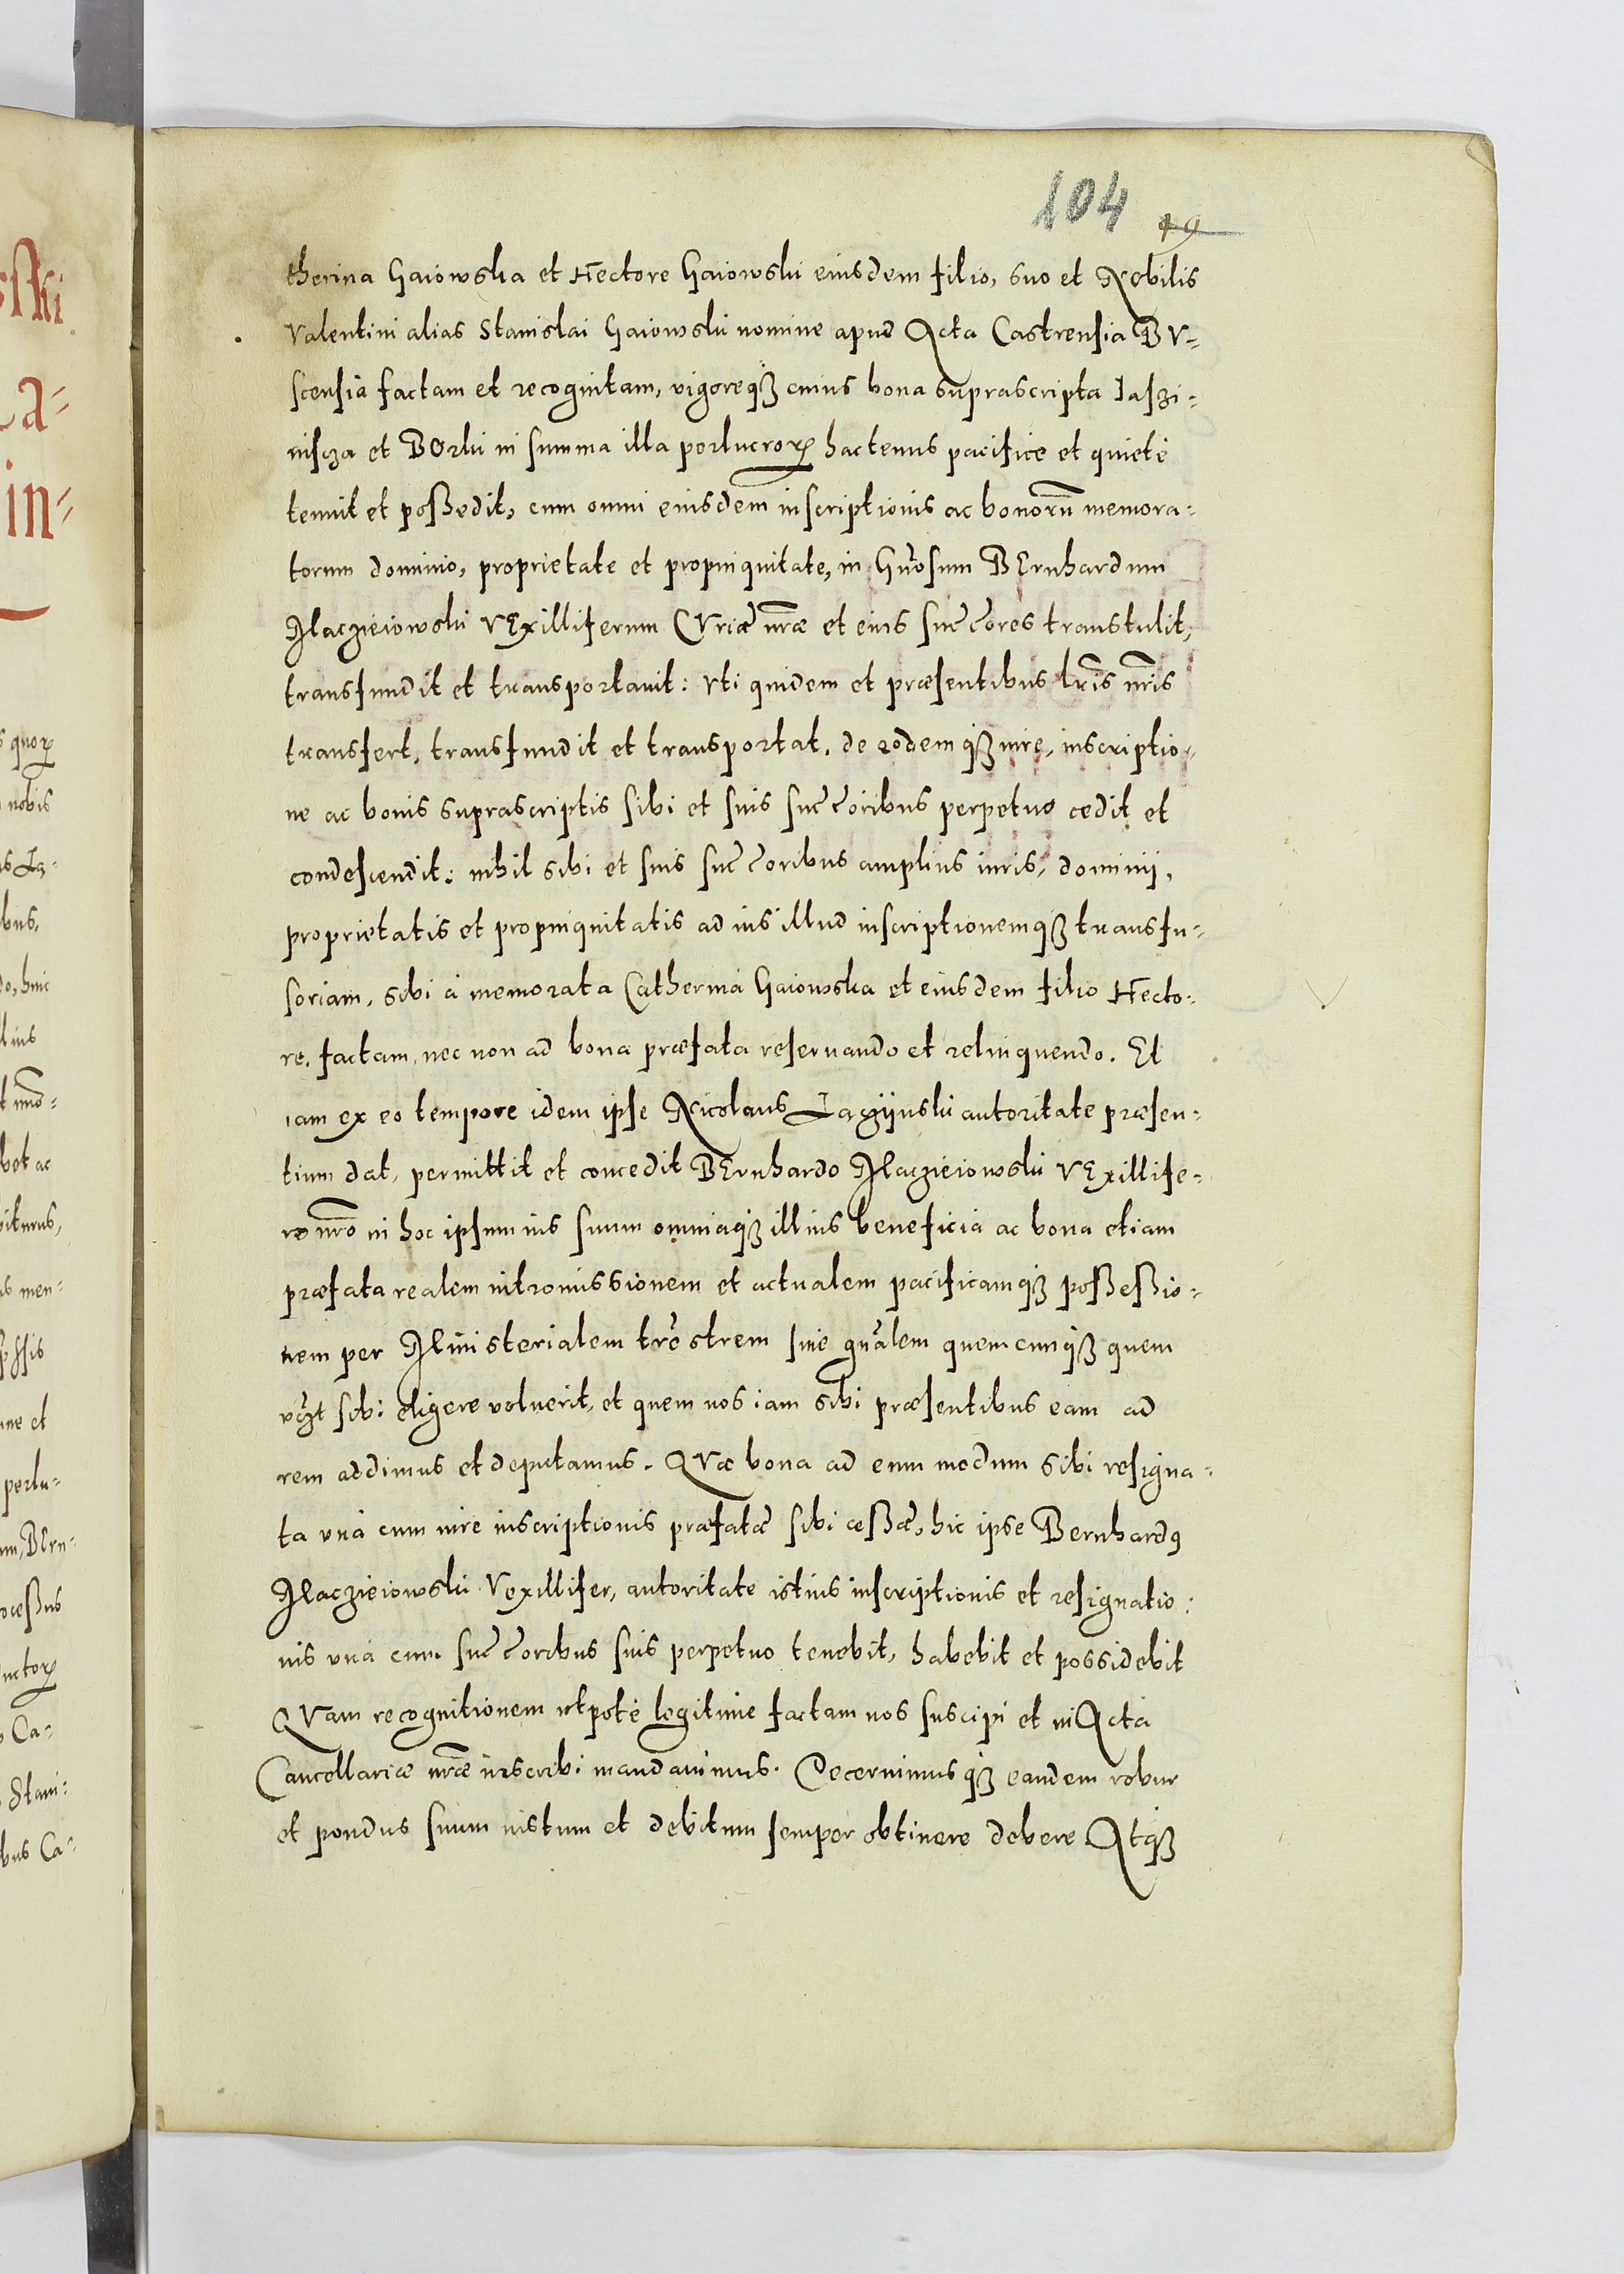 104 49
therina Gaiowska et Hectore Gaiowski eiusdem filio, suo et Nobilis
Valentini alias Stanislai Gaiowski nomine apud Acta Castrensia BV-
scensia factam et recognitam, vigoreqȝ cuius bona suprascripta Iaszi-
niscza et BOrki in summa illa porlucroꝝ hactenus pacifice et quiete
tenuit et poßedit, cum omni eiusdem inscriptionis ac bonorū memora-
torum dominio, proprietate et propinquitate, in Gn̄osum BErnhardum
Maczieiowski VExilliferum CVriæ nr̄æ et eius succ̄ores transtulit,
transfundit et transportauit: Vti quidem et præsentibus lr̄is nr̄is
transfert, transfundit et transportat, de eodem qȝ iure, inscriptio-
ne ac bonis suprascriptis sibi et suis succ̄oribus perpetuo cedit et
condescendit: nihil sibi et suis succ̄oribus amplius iuris, dominij,
proprietatis et propinquitatis ad ius illud inscriptionemqȝ transfu-
soriam, sibi à memorata Catherina Gaiowska et eiusdem filio Hecto-
re, factam, nec non ad bona præfata reseruando et relinquendo. Et
iam ex eo tempore idem ipse Nicolaus Lagijnski autoritate præsen-
tium dat, permittit et concedit BErnhardo Maczieiowski VExillife-
ro nr̄o in hoc ipsum ius suum omniaqȝ illius beneficia ac bona etiam
præfata realem intromissionem et actualem pacificamqȝ poßeßio-
nem per Ministerialem trr̄estrem siue gn̄alem quemcunqȝ quem
sibi eligere voluerit, et quem nos iam sibi præsentibus eam ad
rem addimus et deputamus. QVæ bona ad eum modum sibi resigna-
ta vnà cum iure inscriptionis præfatæ sibi ceßæ, hic ipse Bernhardꝯ
Maczieiowski Vexillifer, autoritate istius inscriptionis et resignatio:
nis vnà cum succ̄oribus suis perpetuo tenebit, habebit et possidebit
QVam recognitionem vtpote legitime factam nos suscipi et in Acta
Cancellariæ nr̄æ inscribi mandauimus. Decernimusqȝ eandem robur
et pondus suum iustum et debitum semper obtinere debere Atqȝ